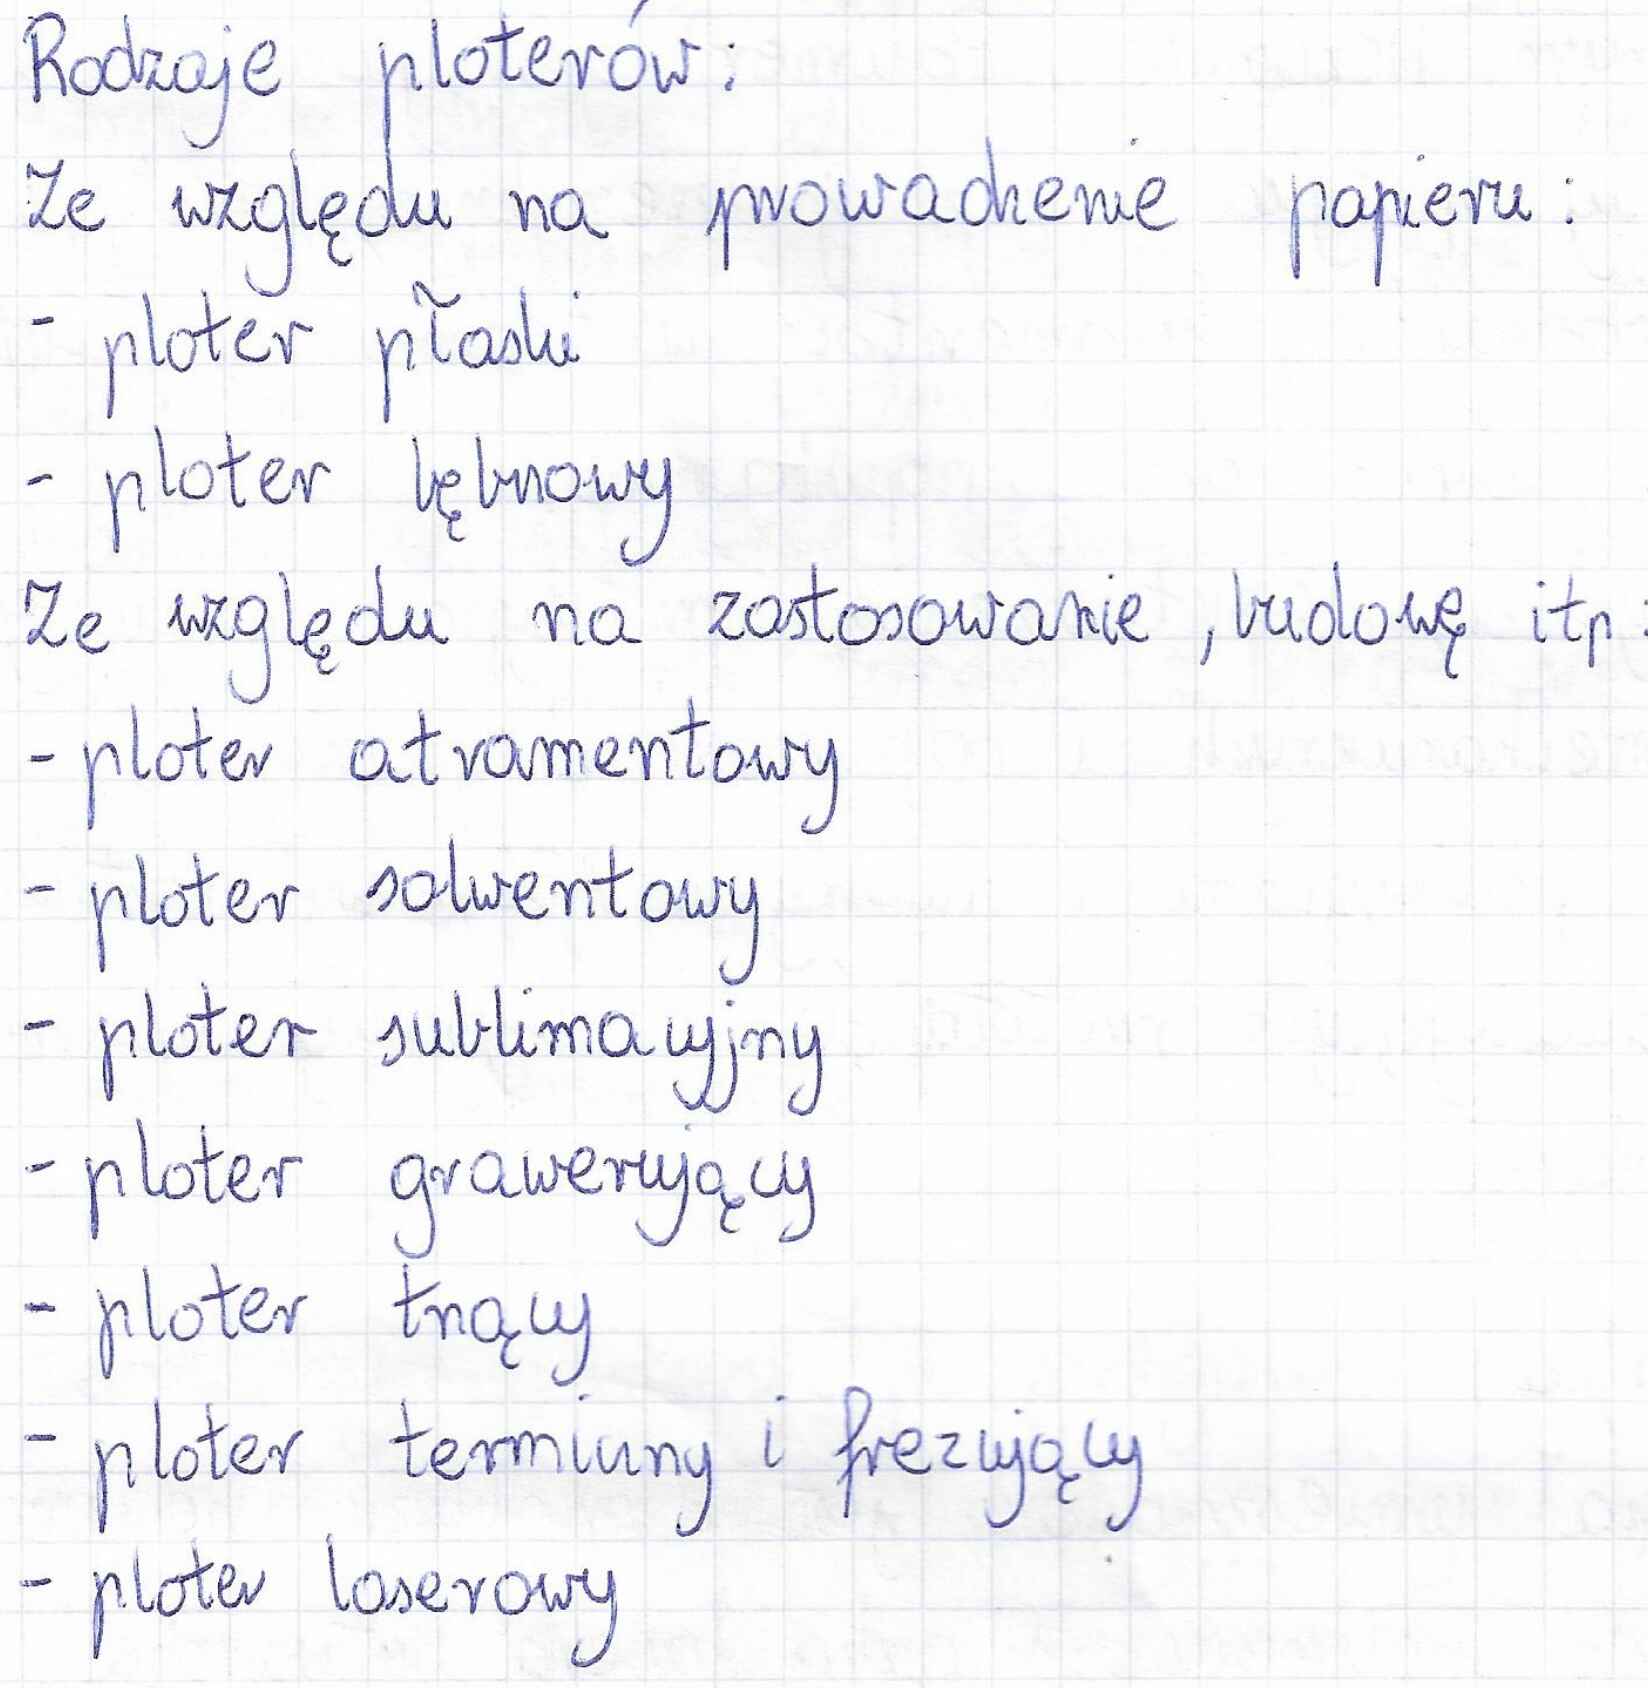 Rodzaje ploterów:
Ze względu na prowadzenie papieru:
- ploter płaski
- ploter bębnowy
Ze względu na zastosowanie, budowę itp:
- ploter atramentowy
- ploter solwentowy
- ploter sublimacyjny
- ploter grawerujący
- ploter tnący
- ploter termiczny i frezujący
- ploter laserowy